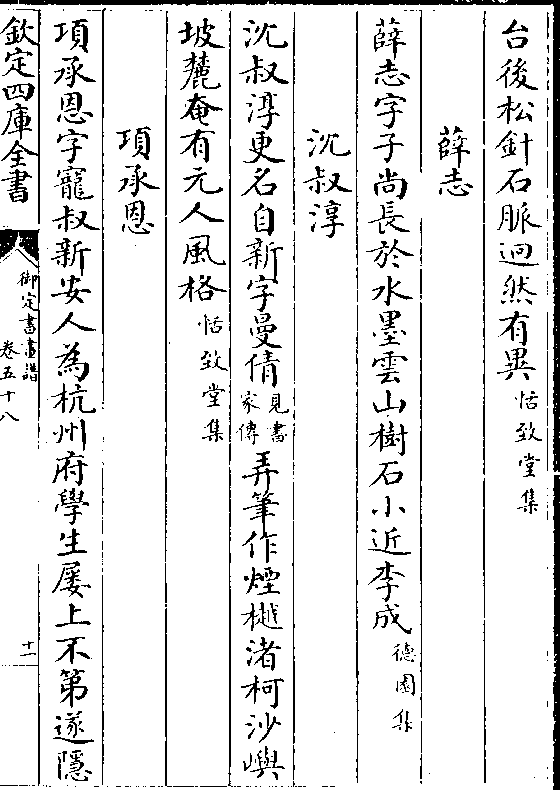 台後松針石脈迥然有異恬致堂集
薛志
薛志字子尚長於水墨雲山樹石小近李成德園集
沈叔淳
沈叔淳更名自新字曼倩見書家傳弄筆作煙樾渚柯沙嶼
坡麓奄有元人風格恬致堂集
項承恩
項承恩字寵叔新安人為杭州府學生屡上不第遂隱
欽定四庫全書
御定書畫譜
卷五十八
十一